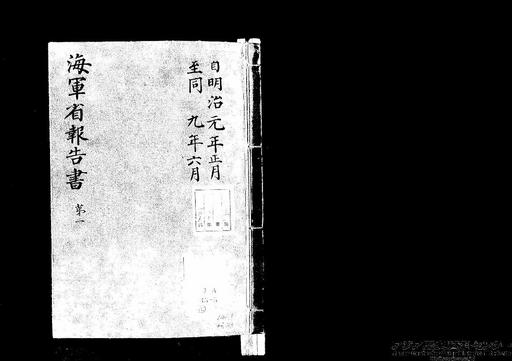 自明治元年正月
至同 九年六月
海軍省報告書 第一